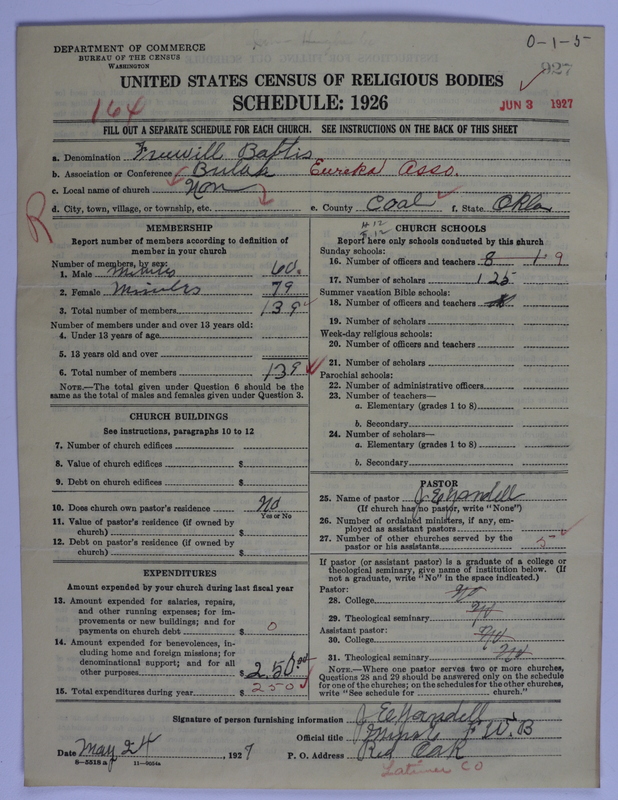 O-1-5
927
DEPARTMENT OF COMMERCE
BUREAU OF THE CENSUS
WASHINGTON
UNITED STATES CENSUS OF RELIGIOUS BODIES
164
SCHEDULE: 1926
JUN 3 1927
FILL OUT A SEPARATE SCHEDULE FOR EACH CHURCH. SEE INSTRUCTIONS ON THE BACK OF THIS SHEET
a. Denomination Freewill Baptis
b. Association or Conference Eureka Asso.
c. Local name of church Non
d. City, town, village, or township, etc. e. County Coal f. State Okla
R
MEMBERSHIP
Report number of members according to definition of
member in your church
Number of members, by sex:
1. Male 60
2. Female 79
3. Total number of members 139
Number of members under and over 13 years old:
4. Under 13 years of age
5. 13 years old and over
6. Total number of members 139
NOTE.—The total given under Question 6 should be the
same as the total of males and females given under Question 3.
CHURCH BUILDINGS
See instructions, paragraphs 10 to 12
7. Number of church edifices
8. Value of church edifices $
9. Debt on church edifices $
10. Does church own pastor's residence No
Yes or No
11. Value of pastor's residence (if owned by
church) $
12. Debt on pastor's residence (if owned by
church) $
EXPENDITURES
Amount expended by your church during last fiscal year
13. Amount expended for salaries, repairs,
and other running expenses; for im-
provements or new buildings; and for
payments on church debt $ 0
14. Amount expended for benevolences, in-
cluding home and foreign missions; for
denominational support; and for all
other purposes $ 2.50
15. Total expenditures during year $ 250
CHURCH SCHOOLS
Report here only schools conducted by this church
Sunday schools:
16. Number of officers and teachers 8
17. Number of scholars 125
Summer vacation Bible schools:
18. Number of officers and teachers
19. Number of scholars
Week-day religious schools:
20. Number of officers and teachers
21. Number of scholars
Parochial schools:
22. Number of administrative officers
23. Number of teachers—
a. Elementary (grades 1 to 8)
b. Secondary
24. Number of scholars—
a. Elementary (grades 1 to 8)
b. Secondary
PASTOR
25. Name of pastor J E Wandell
(If church has no pastor, write "None")
26. Number of ordained ministers, if any, em-
ployed as assistant pastors
27. Number of other churches served by the
pastor or his assistants
If pastor (or assistant pastor) is a graduate of a college or
theological seminary, give name of institution below. (If
not a graduate, write "No" in the space indicated.)
Pastor:
28. College No
29. Theological seminary No
Assistant pastor:
30. College No
31. Theological seminary No
NOTE.—Where one pastor serves two or more churches,
Questions 28 and 29 should be answered only on the schedule
for one of the churches; on the schedules for the other churches,
write "See schedule for church."
Signature of person furnishing information J E Wandell
Official title F W. B
Date May 24, 1927 P. O. Address Red Oak
8—5518 a 11—9054a
Latimer CO